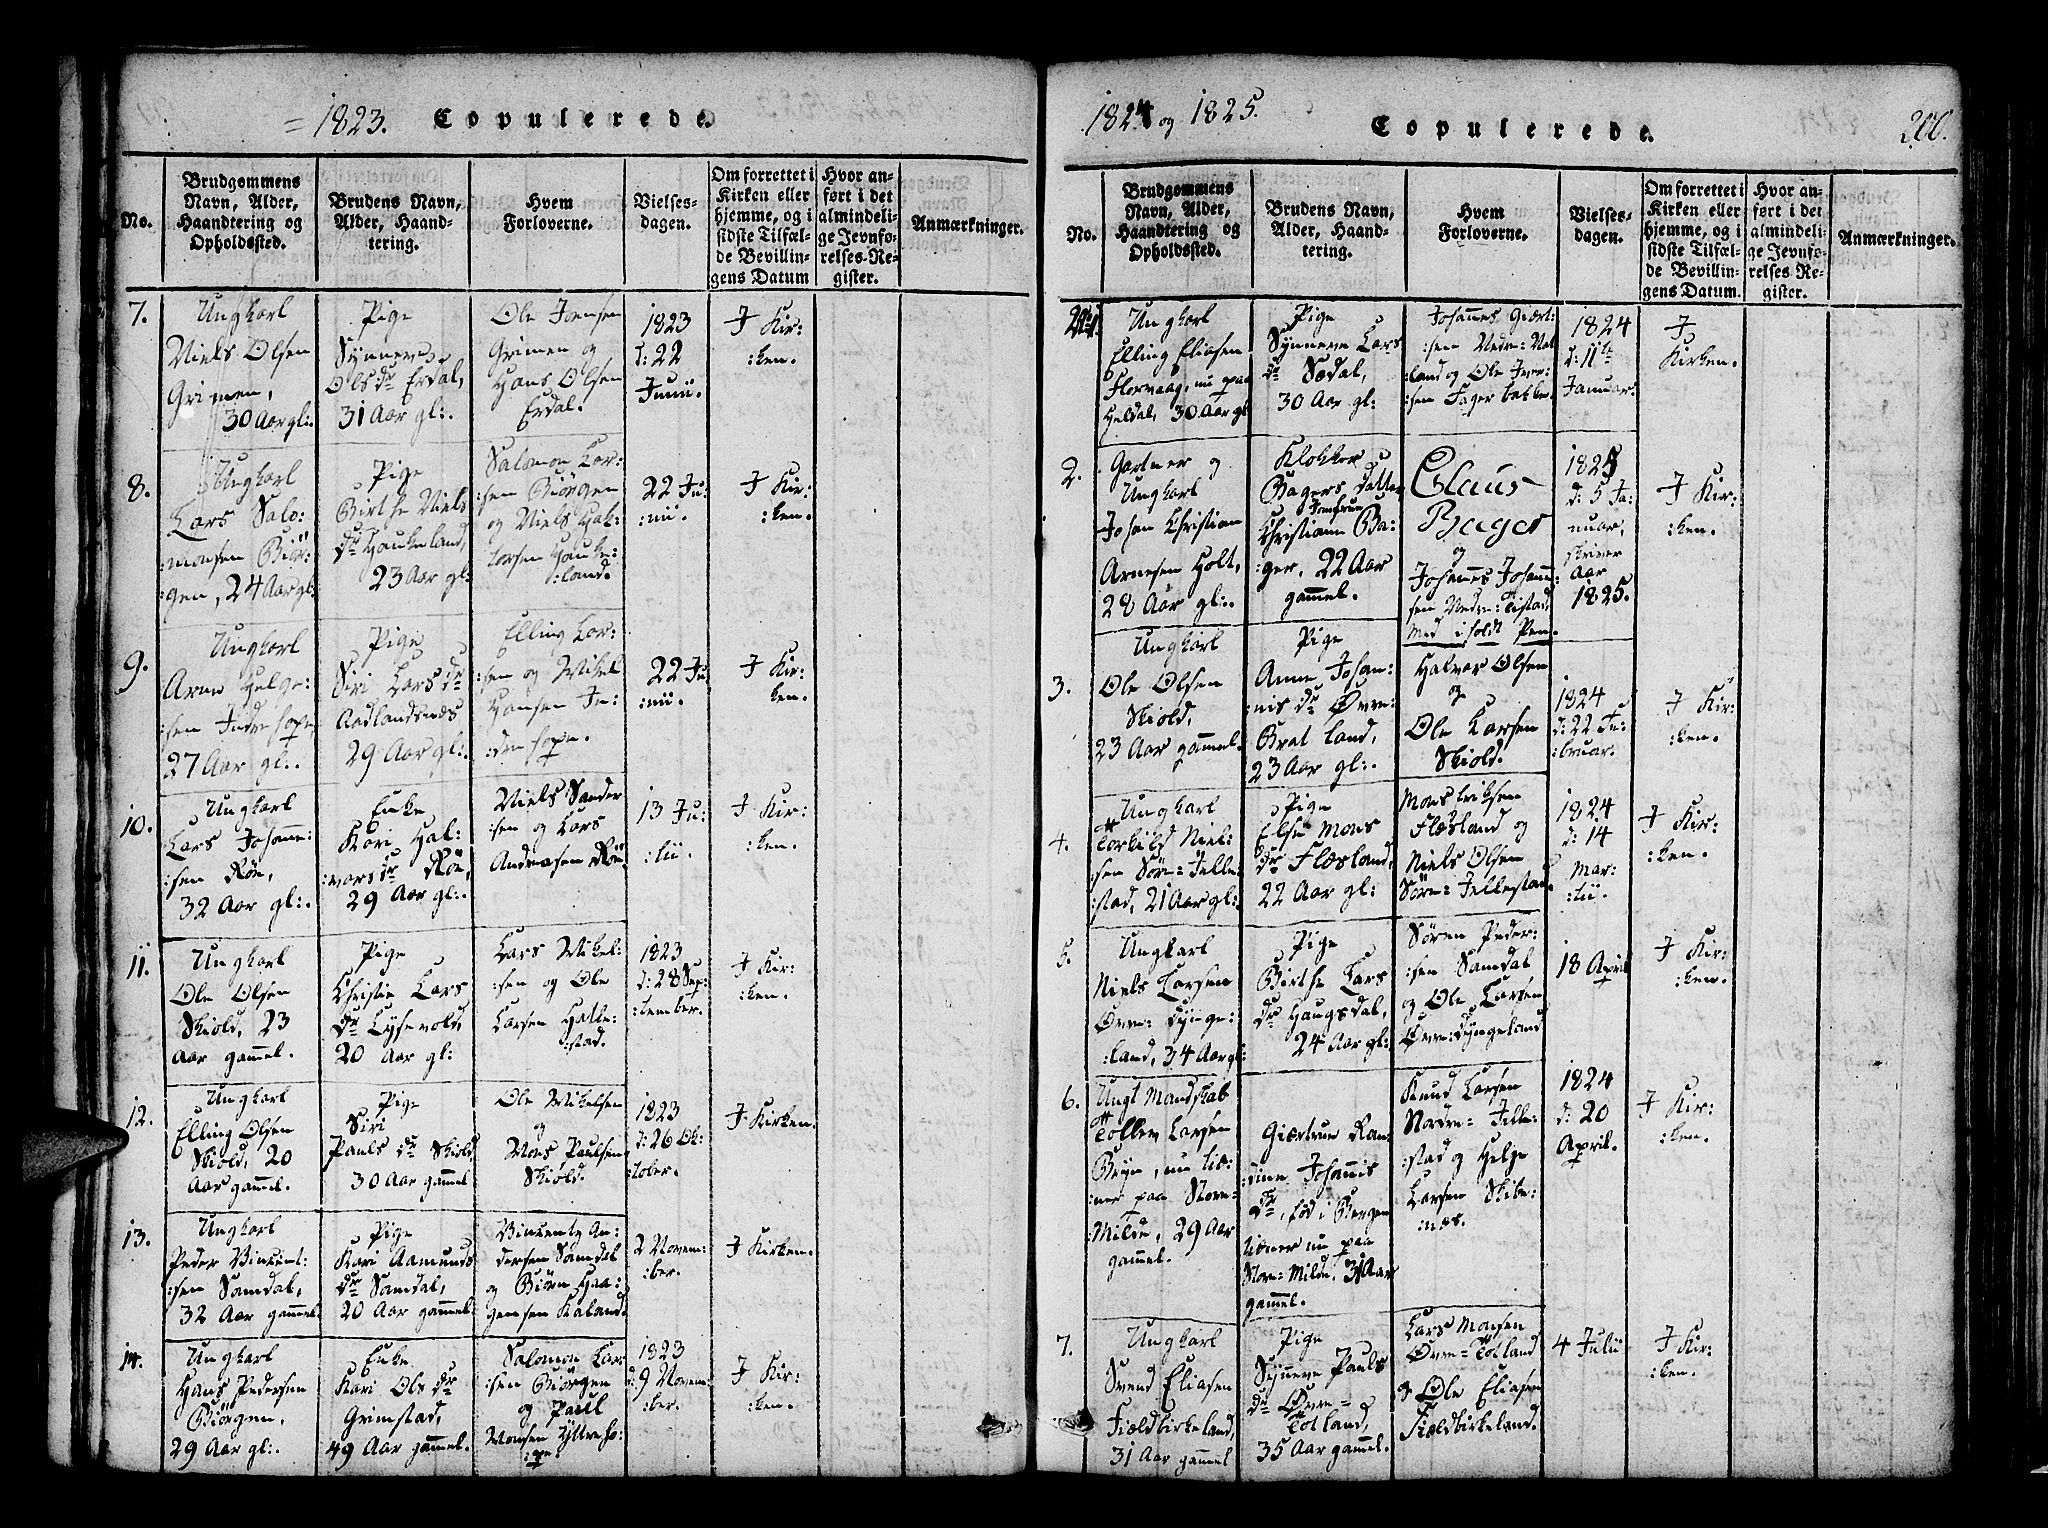 1823. Copulerede.
No.
Brudgommens Navn, Alder, Haandtering og Opholdssted.
Brudens Navn, Alder, Haandtering.
Hvem Forloverne.
Vielsesdagen.
Om forrettet i Kirken eller hjemme, og i sidste Tilfælde Bevillingens Datum
Hvor anført i det almindelige Jevnførelses-Register.
Anmærkninger.
7.
Ungkarl
Niels Olsen
Grimen,
30 Aar gl:.
Pige
Synneve
Ols dr Erdal,
31 Aar gl:.
Ole Jensen
Grimen og
Hans Olsen
Erdal.
1823
d: 22
Junii.
J Kir:
:ken.
8.
Ungkarl
Lars Salo:
:monsen Biör:
:gen, 24 Aar gl:
Pige
Birthe Niels
dr Haukeland,
23 Aar gl:
Salomon Lar:
:sen Biörgen
og Niels Hal:
:lorsen Hauke:
:land.
22 Ju:
:nii.
J Kir:
:ken.
9.
Ungkarl
Arne Helge:
:sen Indre hope
27 Aar gl:.
Pige
Siri Lars dr
Aadlandsnæs
29 Aar gl:.
Elling Lar:
:sen og Mikel
Hansen In:
:dre hope.
22 Ju:
:nii.
J Kir:
ken.
10.
Ungkarl
Lars Johanne:
:sen Röe,
32 Aar gl:.
Enke
Kari Hal:
:vors dr Röe,
29 Aar gl:.
Niels Sander
:sen og Lars
Andreasen Röe
13 Ju:
:lii.
J Kir:
:ken.
11.
Ungkarl
Ole Olsen
Skiold, 23
Aar gammel.
Pige
Christie Lars
dr Lysevold,
20 Aar gl:
Lars Mikel:
:sen og Ole
Larsen Halle:
:stad.
1823
d: 28 Sep:
:tember.
J Kir:
:ken.
12.
Ungkarl
Elling Olsen
Skiold, 20
Aar gammel.
Pige
Siri
Pauls dr Skiold
30 Aar gammel
Ole Mikelsen
og
Mons Paulsen
Skiold.
1823
d: 26 Ok:
:tober.
J Kirken.
13.
Ungkarl
Peder Vincent:
:sen Samdal,
32 Aar gammel
Pige
Kari Aamunds
dr Samdal,
20 Aar gammel
Vincents An:
dersen Samdal
og Biörn Haa:
gensen Kaland.
2 Novem:
:ber.
J Kirken.
14.
Ungkarl
Hans Pedersen
Biörgen,
29 Aar gl:.
Enke
Kari Ols dr
Grimstad,
49 Aar gammel.
Salomon Lar
:sen Biörgen
og Paul
Monsen Yttre ho:
:pe.
1823
d: 9 Novem:
:ber.
J Kir:
:ken.
1824 og 1825. Copulerede. 206.
No.
Brudgommens Navn, Alder, Haandtering og Opholdssted.
Brudens Navn, Alder, Haandtering.
Hvem Forloverne.
Vielsesdagen.
Om forrettet i Kirken eller hjemme, og i sidste Tilfælde Bevillingens Datum.
Hvor anført i det almindelige Jevnførelses Register.
Anmærkninger.
Ungkarl
Elling Eliasen
Florvaag, nu paa
Heldal, 30 Aar gl
Pige
Synneve Lars
dr Sædal,
30 Aar gl:
Johannes Giert:
:sen Nedre: Nat
:land og Ole Iver
:sen Fagerbakke.
1824
d: 11te
Januar.
J
Kirken.
2.
Gartner og
Ungkarl
Johan Christian
Arnesen Holt,
28 Aar gl:.
Klokker
Bagers Datter
Jomfrue
Christiane Ba:
:ger, 22 Aar
gammel.
Claus
Bager
og
Johannes Johanne:
sen Nedre: Tistad,
Med iholdt Pen.
1825
d: 5 Ja:
nuar,
skriver
Aar
1825.
J Kir:
:ken.
3.
Ungkarl
Ole Olsen
Skiold,
23 Aar gammel.
Pige
Anne Johan:
:nis dr Øvre:
Bratland,
23 Aar gl:.
Halvor Olsen
og
Ole Larsen
Skiold.
1824
d: 22 Fe:
:bruar.
J Kir:
:ken.
4.
Ungkarl
Torkild Niel:
sen Söre= Jelle:
:stad, 21 Aar gl:.
Pige
Else Mons
dr Flæsland,
22 Aar gl:
Mons Eriksen
Flæsland og
Niels Olsen
Söre= Jellestad.
1824
d: 14
Mar:
:tii.
J Kir:
:ken.
5.
Ungkarl
Niels Larsen
Øvre= Dynge:
:land, 34 Aar gl:
Pige
Birthe Lars
dr Haugsdal,
24 Aar gl:
Sören Peder:
:sen Samdal
og Ole Larsen
Øvre: Dyngeland
18 April
J Kir:
:ken.
6.
Ungt Mandskab
Tollev Larsen
Bryn, nu tie:
:ner paa Store=
Milde, 29 Aar
gammel.
Giertrue Kan:
:dine Johannis
dr, föd i Bergen
tiener nu paa
Store= Milde, 31 Aar
gammel.
Knud Larsen
Nordre= Jelle:
:stad og Helge
Larsen Skibe:
:næs.
1824
d: 20
April.
J Kir:
:ken.
7.
Ungkarl
Svend Eliasen
Fieldbirkeland,
31 Aar gammel
Pige
Synneve Pauls
dr Øvre=
Totland,
35 Aar gammel.
Lars Monsen
Øvre= Totland
& Ole Eliasen
Fieldbirkeland.
4 Julii
J Kir:
:ken.